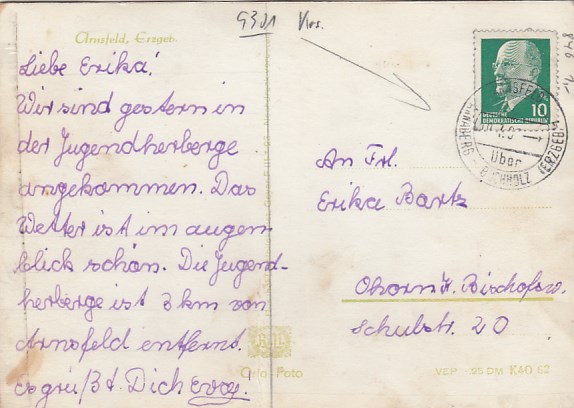 G381 Krs.
Arnsfeld, Erzgeb.
Liebe Erika!
Wir sind gestern in
der Jugendherberge
angekommen. Das
Wetter ist im augen-
blick schön. Die Jugend-
herberge ist 3 km von
Arnsfeld entfernt.
es grüßt Dich
10
DEUTSCHE
DEMOKRATISCHE REPUBLIK
über
BUCHHOLZ (ERZGEB)
An Frl.
Erika Bartz
Ohorn Kr. Bischofsw.
Schulstr. 20
Orlo-Foto
VEB 25 DM K 40 62